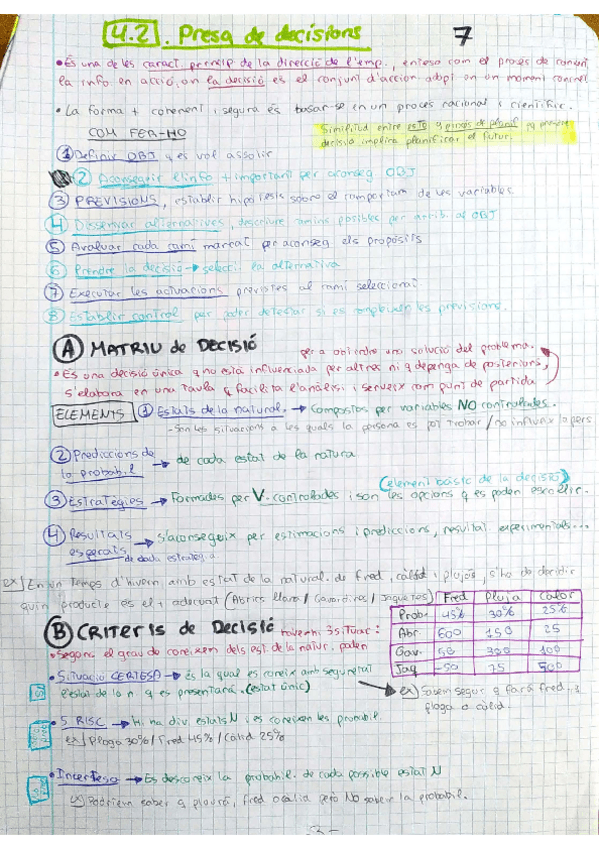 4.2. Presa de decisions 7
• És una de les caract. princip de la direcció de l'emp., entesa com el procés de convert
la info. en acció, on la decisió es el conjunt d'accion adopt en un moment concret
• La forma + coherent i segura és basar-se en un procés racional i científic.
COM FER-HO
Similitud entre esto y procés de planif pq prendre
decisió implica planificar el futur.
① Definir OBJ q es vol assolir
② Aconseguir l'info + important per aconseg OBJ
③ PREVISIONS, establir hipòtesis sobre el comportam de les variables
④ Dissenyar alternatives, descriure camins possibles per arrib. al OBJ
⑤ Avaluar cada camí marcat per aconseg els propòsits
⑥ Prendre la decisió → selecci. la alternativa
⑦ Executar les actuacions previstes al camí seleccionat
⑧ Establir control per poder detectar si es compleixen les previsions.
Ⓐ MATRIU de DECISIÓ per a obtindre una solució del problema.
• És una decisió única q no està influenciada per altres ni q depenga de posteriors,
s'elabora en una taula q facilita l'anàlisi i serveix com punt de partida
ELEMENTS ① Estats de la natural. → Compostos per variables NO controlades.
- Son les situacions a les quals la persona es pot trobar / no influix la pers
② Prediccions de
la probabil → de cada estat de la natura
(element bàsic de la decisió)
③ Estratègies → Formades per V. controlades i son les opcions q es poden escollir.
④ Resultats → s'aconsegueix per estimacions i prediccions, resultat experimentals...
esperats de cada estratègia
ex] En un temps d'hivern, amb estat de la natural. de fred, càlid i plujós, s'ha de decidir
quin producte és el + adequat (Abrics llana / Gavardines / Jaquetes)
Fred Pluja Calor
Prob. 45% 30% 25%
Abr 600 150 25
Gav. 50 300 100
Jaq -50 75 500
Ⓑ CRITERIS de DECISIÓ
• Segons el grau de coneixem dels est. de la natur. poden haver-hi 3 situac:
• Situació CERTESA → és la qual es coneix amb seguretat
l'estat de la n. q es presentarà. (estat únic)
ex] Sabem segur q farà fred, i
ploga o càlid.
• S. RISC → Hi ha div. estats N i es coneixen les probabil.
ex] Ploga 30% / Fred 45% / Càlid 25%
• Incertesa → Es desconeix la probabil. de cada possible estat N
ex] Podriem saber q plourà, fred o càlid però NO sabem la probabil.